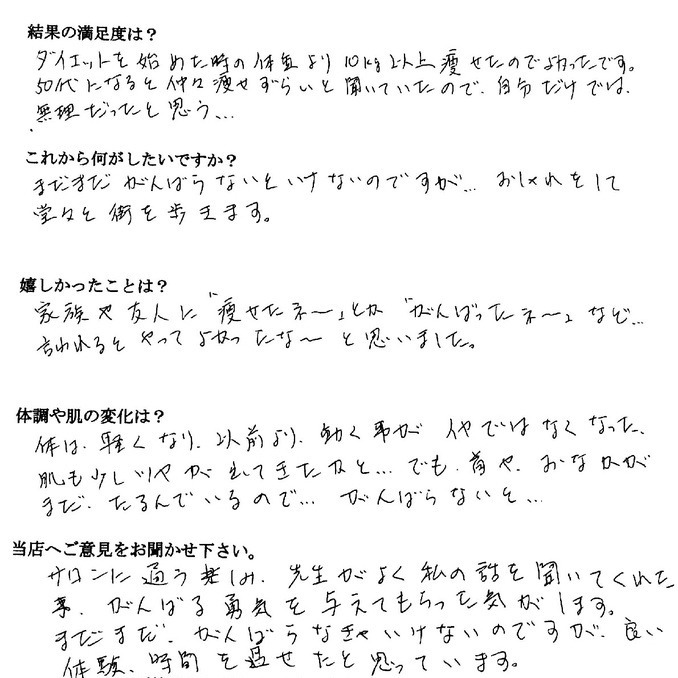 結果の満足度は？
ダイエットを始めた時の体重より10kg以上痩せたのでよかったです。
50代になると仲々痩せずらいと聞いていたので、自分だけでは、
無理だったと思う…
これから何がしたいですか？
まだまだがんばらないといけないのですが… おしゃれをして
堂々と街を歩きます。
嬉しかったことは？
家族や友人に「痩せたネ〜」とか「がんばったネ〜」など…
言われるとやってよかったな〜と思いました。
体調や肌の変化は？
体は、軽くなり、以前より、動く事がイヤではなくなった、
肌も少しツヤが出てきたかなと… でも、首や、おなかが
まだ、たるんでいるので… がんばらないと…
当店へご意見をお聞かせ下さい。
サロンに通う楽しみ、先生がよく私の話を聞いてくれた
事、がんばる勇気を与えてもらった気がします。
まだまだ、がんばらなきゃいけないのですが、良い
体験、時間を過せたと思っています。